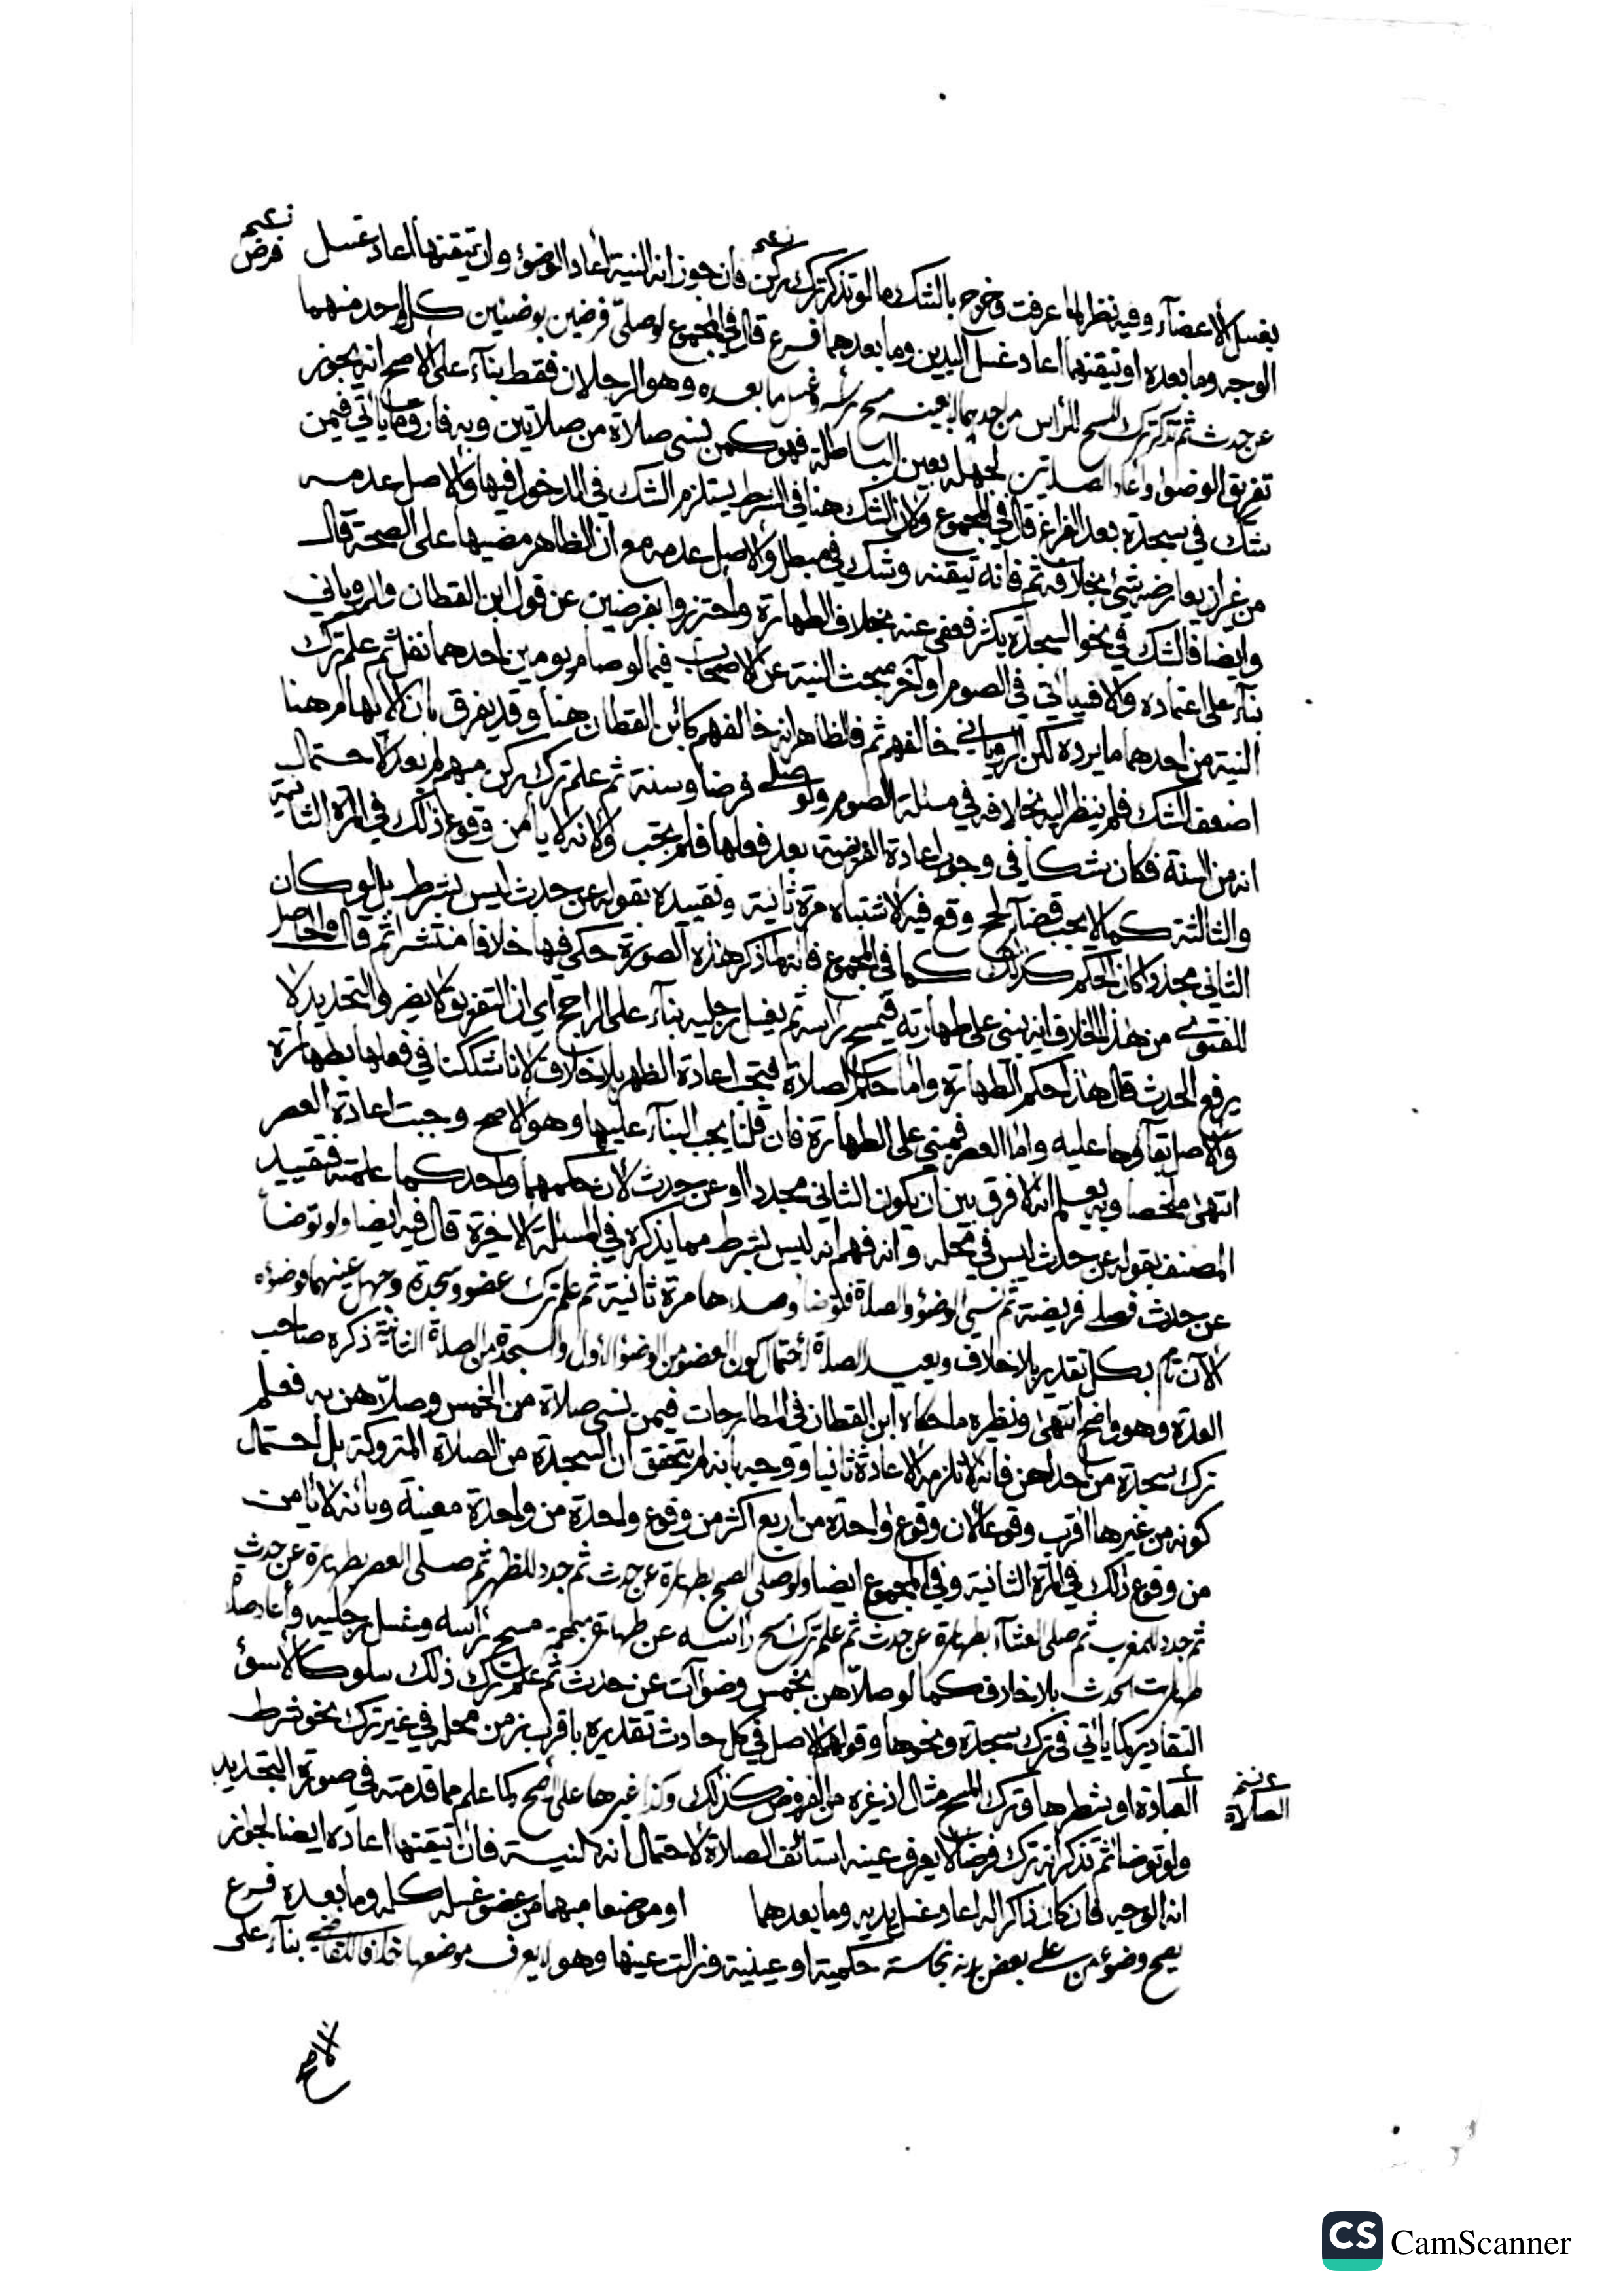 بغسل الأعضاء وفيه نظر لما عرفت وخرج بالشك ما لو تذكر ترك ركن فان جوز انه النية أعاد الوضوء وان تيقنها أعاد غسل
نعم
نعم
فرض
الوجه وما بعده او تيقنهما أعاد غسل اليدين وما بعدهما فرع قال في المجموع لو صلى فرضين بوضئين كل واحد منهما
عن حدث ثم تذكر ترك المسح للرأس من احدهما لا بعينه مسح رأسه وغسل ما بعده وهو الرجلان فقط بناء على الاصح انه يجوز
تفريق الوضوء واعاد الصلاتين لجهله بعين الباطلة فهو كمن نسى صلاة من صلاتين وبه فارق ما ياتي فيمن
شك في سجدة بعد الفراغ قال في المجموع ولان الشك هنا في الشرط يستلزم الشك في الدخول فيها والاصل عدمه
من غير ان يعارضه شئ بخلافه ثم فانه تيقنه وشك في مبطل والاصل عدمه مع ان الظاهر مضيها على الصحة قال
وايضا فالشك في نحو السجدة يكثر فعفى عنه بخلاف الطهارة واحترزوا بفرضين عن قول ابن القطان والروياني
بناء على اعتماده والا فسياتي في الصوم او آخر مبحث النية عن الاصحاب فيما لو صام يومين احدهما نفل ثم علم ترك
النية من احدهما ما يرده لكن الروياني خالفهم ثم فالظاهر انه خالفهم كابن القطان هنا وقد يفرق بان الابهام هنا
اضعف الشك فلم ينظر اليه بخلافه في مسئلة الصوم ولو صلى فرضا وسنة ثم علم ترك ركن مبهم لم يعد لاحتمال
انه من السنة فكان شكا في وجوب اعادة الفريضة بعد فعلها فلم يجب ولانه لا يأمن وقوع ذلك في المرة الثانية
والثالثة كما لا يجب قضاء لحج وقع فيه الاشتباه مرة ثانية وتقييده بقوله عن حدث ليس بشرط بل لو كان
الثاني مجددا كان الحكم كذلك كما في المجموع فانه لما ذكر هذه الصورة حكى فيها خلافا منتشرا ثم قال والحاصل
للفتوى من هذا الخلاف انه يبنى على طهارته فيمسح رأسه ثم يغسل رجليه بناء على الراجح اي ان التفريق لا يضر والتجديد لا
يرفع الحدث قال هذا حكم الطهارة واما حكم الصلاة فتجب اعادة الظهر بلا خلاف لانا شككنا في فعلها بطهارة
والاصل بقاؤها عليه واما العصر فمبني على الطهارة فان قلنا يجب البناء عليها وهو الاصح وجبت اعادة العصر
انتهى ملخصا وبه يعلم انه لا فرق بين ان يكون الثاني مجددا او عن حدث لان حكمهما واحد كما علمته فتقييد
المصنف بقوله عن حدث ليس في محله وانه فهم انه ليس بشرط مما يذكره في المسئلة الاخيرة قال فيه ايضا ولو توضأ
عن حدث فصلى فريضة ثم نسى الوضوء والصلاة فتوضأ وصلاها مرة ثانية ثم علم ترك عضو وسجدة وجهل عينهما فوضوءه
الآن تام بكل تقدير بلا خلاف ويعيد الصلاة لاحتمال كون العضو من الوضوء الأول والسجدة من الصلاة الثانية ذكره صاحب
العدة وهو واضح انتهى ونظيره ما حكاه ابن القطان في المطارحات فيمن نسى صلاة من الخمس وصلاهن به فعلم
ترك سجدة من احداهن فانه لا تلزمه الاعادة ثانيا ووجه بانه لم يتحقق ان السجدة من الصلاة المتروكة بل احتمال
كونه من غيرها اقرب وقوعا لان وقوع واحدة من اربع اكثر من وقوع واحدة من واحدة معينة وبانه لا يأمن
من وقوع ذلك في المرة الثانية وفي المجموع ايضا ولو صلى الصبح بطهارة عن حدث ثم جدد للظهر ثم صلى العصر بطهارة عن حدث
ثم جدد للمغرب ثم صلى العشاء بطهارة عن حدث ثم علم ترك مسح رأسه عن طهارة مبهمة مسح رأسه وغسل رجليه وأعاد صلاة
طهارت الحدث بلا خلاف كما لو صلاهن بخمس وضوآت عن حدث ثم علم ترك ذلك سلوكا لأسوئ
التقادير كما يأتي في ترك سجدة ونحوها وقولهم الاصل في كل حادث تقديره باقرب زمن محله في غير ترك نحو شرط
العبادة او شطرها وترك المسح مثال اذ غيره من الفروض كذلك وكذا غيرها على الاصح كما علم مما قدمته في صورة التجديد
الصلاة
ولو توضأ ثم تذكر انه ترك فرضا لا يعرف عينه استأنف الصلاة لاحتمال انه النية فان تيقنها اعاده ايضا لجواز
انه الوجه فان كان ذاكرا له اعاد غسل يديه وما بعدهما او موضعا مبهما من عضو غسله كله وما بعده فرع
يصح وضوء من على بعض بدنه نجاسة حكمية او عينية وزالت عينها وهو لا يعرف موضعها خلافا للقاضي بناء على
الاصح
CS CamScanner